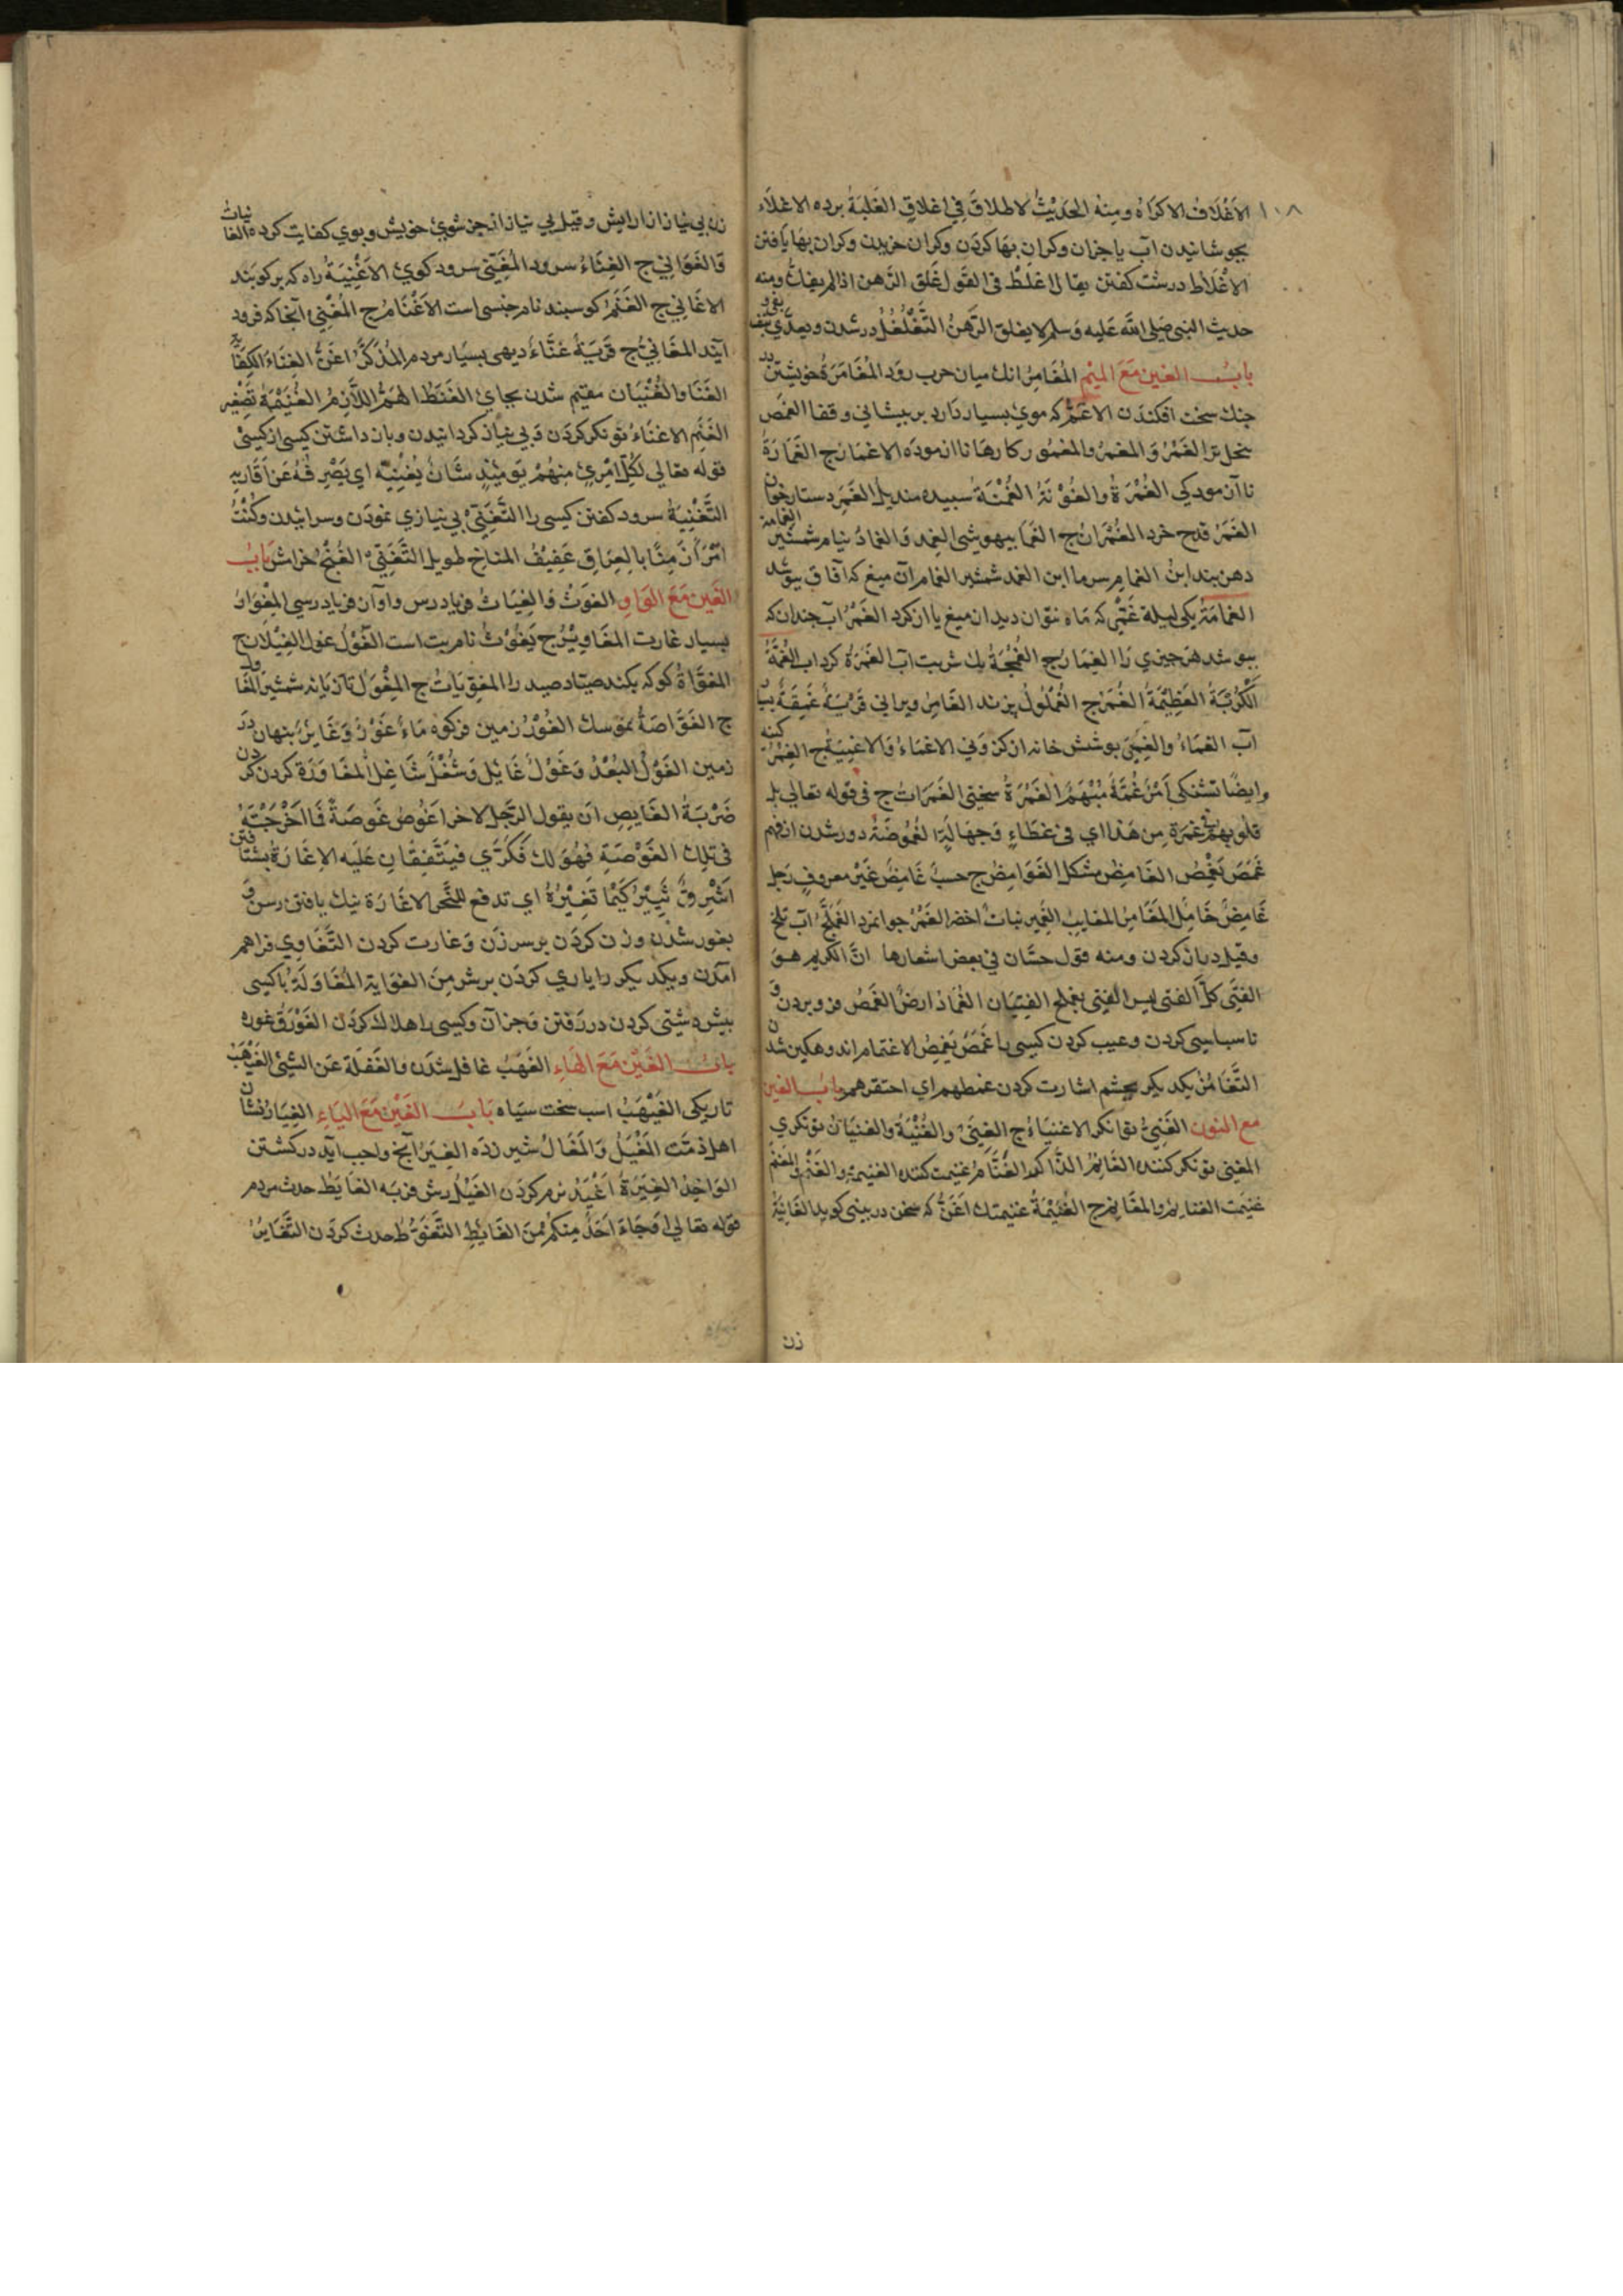 ١٠٨
الاغلاق الاكراه ومنه الحديث لا طلاق في اغلاق الغلبة برده الاغلاء
بجوشانيدن آب يا جزان وكران بها كردن وكران خريدن وكران بها يافتن
الاغلاط درشت كفتن يقال اغلظ في القول غلق الرهن اذا لم يفك ومنه
حديث النبي صلى الله عليه وسلم لا يغلق الرهن التغلغل در شدن
باب الغين مع الميم المغامر انك ميان حرب رود المغامرة خويشتن
جنك سخت افكندن الاغم كه موي بسيار دارد بر پيشاني وقفا الغمص
الغمر والمغمر والمغمور كارها ناازموده الاغمار ج الغمارة
ناآزمودكي الغمرة سپيده منديل الغمر دستارخوان
الغمر قدح خرد الغمران ج الغما بيهوشي الغمد والغماد نيام شمشير
دهن بند ابن الغمام سرما ابن الغمد شمشير الغمام آن ميغ كه آفاق بپوشد
الغمامة يكي ليلة غمى كه ماه نتوان ديد ان ميغ يا از كرد الغمر آب چندان كه
بپوشد هر چيزي را الغمار ج الغمجة يك شربت آب الغمرة كرداب الغمة
الكربة العظيمة الغمم ج الغملول الغامر ويراني قرية غمقة
آب الغماء والغمى پوشش خانه الاغماء والاغمية ج الغمر كينه
وايضا تشنكي امر غمة مبهم الغمرة سختي الغمرات ج في قوله تعالى بل
قلوبهم في غمرة من هذا اي في غطاء وجهالة الغموضة دور شدن از فهم
غمض يغمض الغامض مشكل الغوامض ج حسب غامض غير معروف رجل
غامض خامل المغامز المعايب الغمير نبات اخضر الغمر جوانمرد الغملج آب تلخ
وقيل دهان كردن ومنه قول حسان في بعض اشعارها ان الكريم هو
الفتى كل الفتى ليس الفتى الفتيان الغماد ارض الغمص فرو بردن
ناسپاسي كردن وعيب كردن كسي را غمص يغمص الاغتمام اندوهكين شدن
التغامز يكديكر بچشم اشارت كردن غمطهم اي احتقرهم باب الغين
مع النون الغني توانكر الاغنياء ج الغنى والغنية والغنيان توانكري
المغني توانكر كننده الغانم الغنام غنيمت كننده الغنيمة والغنم المغنم
غنيمت الغنايم والمغانم ج الغنيمة غنيمتك اغن كه سخن در بيني كويد الغانية
زن
زن بي نياز از ارايش وقيل بي نياز از جز شوي خويش وبوي كفايت كرده الغانيات
والغواني ج الغناء سرود المغني سرود كوي الاغنية راه كه بر كويند
الاغاني ج الغنم كوسپند نام جنسي است الاغنام ج المغنى آنجا كه فرود
آيند المغاني ج قرية غناء ديهي بسيار مردم المذكر اغن الغناء الكفاية
الغنا والغنيان مقيم شدن بجاي الغنظ الهم اللازم الغنيمة تصغير
الغنم الاغناء توانكر كردن وبي نياز كردانيدن وباز داشتن كسي از كسي
قوله تعالى لكل امرئ منهم يومئذ شان يغنيه اي يصرفه عن اقاربه
التغنية سرود كفتن كسي را التغني بي نيازي نمودن وسرائيدن وكنت
امرأ زمنا بالعراق عفيف المناخ طويل التغني الغنج خراش باب
الغين مع الواو الغوث والغياث فرياد رس واوآن فريادرسي المغوار
بسيار غارت المغاوير ج يغوث نام بت است الغول غول الغيلان ج
المغواة كو كه بكند صياد صيد را المغويات ج المغول تازيانه شمشير
ج الغواصة الغور زمين فروكوه ماء غور وغاير پنهان در
زمين الغول البعد وغول غايل وشغل شاغل
ضربة الغايص ان يقول الرجل لاخر اغوص غوصة فما اخرجته
في تلك الغوصة فهو لك بكذي فيتفقان عليه الاغارة بشتافتن
اشرق ثبير كيما نغير اي تدفع للنحر الاغارة نيك يافتن رسن
بغور شدن وزن كردن بر سر زن وغارت كردن التغاوي فراهم
آمدن ويكديكر را ياري كردن بر شر من الغواية المغاولة با كسي
پيش دستي كردن در رفتن وجز آن وكسي را هلاك كردن الغورق غوره
باب الغين مع الهاء الغهب غافل شدن والغفلة عن الشيء الغيهب
تاريكي الغيهب اسب سخت سياه باب الغين مع الياء الغيار نشان
اهل ذمت المغيل والمغال شير زده الغير آنچ واجب آيد در كشتن
الواحد الغيرة اغيد نرم كردن الغيل رش فربه الغايط حدث مردم
قوله تعالى اوجاء احد منكم من الغايط التغوط حدث كردن التغاير